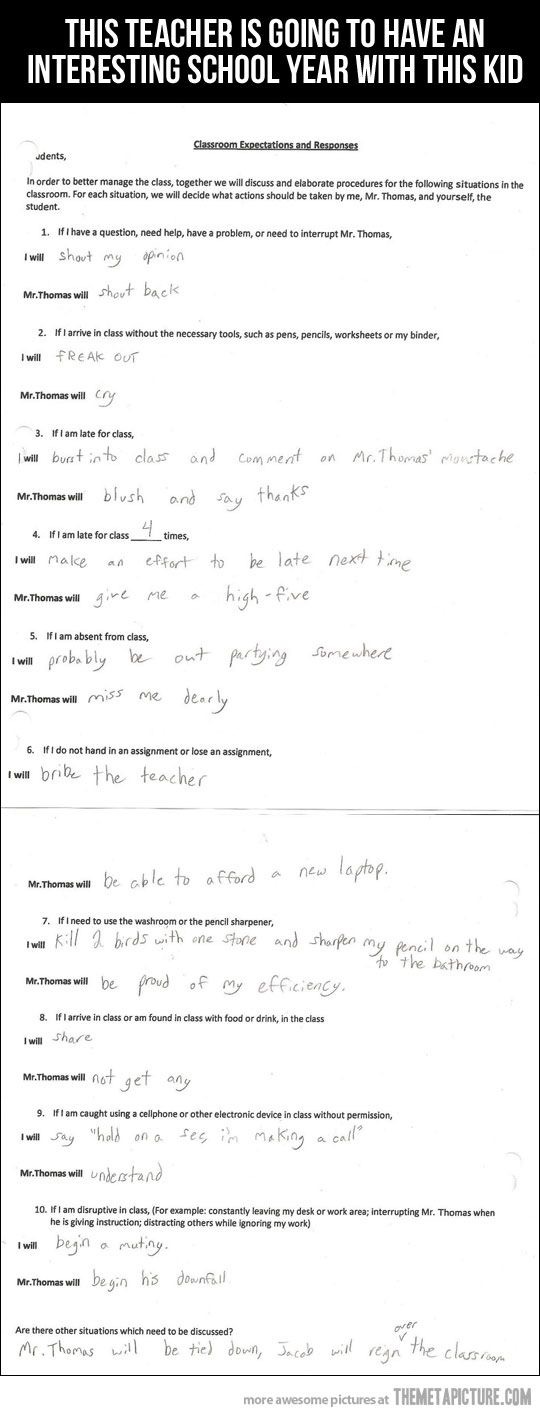 THIS TEACHER IS GOING TO HAVE AN
INTERESTING SCHOOL YEAR WITH THIS KID
Classroom Expectations and Responses
udents,
In order to better manage the class, together we will discuss and elaborate procedures for the following situations in the
classroom. For each situation, we will decide what actions should be taken by me, Mr. Thomas, and yourself, the
student.
1. If I have a question, need help, have a problem, or need to interrupt Mr. Thomas,
I will shout my opinion
Mr.Thomas will shout back
2. If I arrive in class without the necessary tools, such as pens, pencils, worksheets or my binder,
I will FREAK OUT
Mr.Thomas will cry
3. If I am late for class,
I will burst into class and comment on Mr. Thomas' moustache
Mr.Thomas will blush and say thanks
4. If I am late for class 4 times,
I will make an effort to be late next time
Mr.Thomas will give me a high-five
5. If I am absent from class,
I will probably be out partying somewhere
Mr.Thomas will miss me dearly
6. If I do not hand in an assignment or lose an assignment,
I will bribe the teacher
Mr.Thomas will be able to afford a new laptop.
7. If I need to use the washroom or the pencil sharpener,
I will Kill 2 birds with one stone and sharpen my pencil on the way
to the bathroom
Mr.Thomas will be proud of my efficiency.
8. If I arrive in class or am found in class with food or drink, in the class
I will share
Mr.Thomas will not get any
9. If I am caught using a cellphone or other electronic device in class without permission,
I will say "hold on a sec, i'm making a call"
Mr.Thomas will understand
10. If I am disruptive in class, (For example: constantly leaving my desk or work area; interrupting Mr. Thomas when
he is giving instruction; distracting others while ignoring my work)
I will begin a mutiny.
Mr.Thomas will begin his downfall
Are there other situations which need to be discussed?
Mr. Thomas will be tied down, Jacob will reign over the classroom
more awesome pictures at THEMETAPICTURE.COM